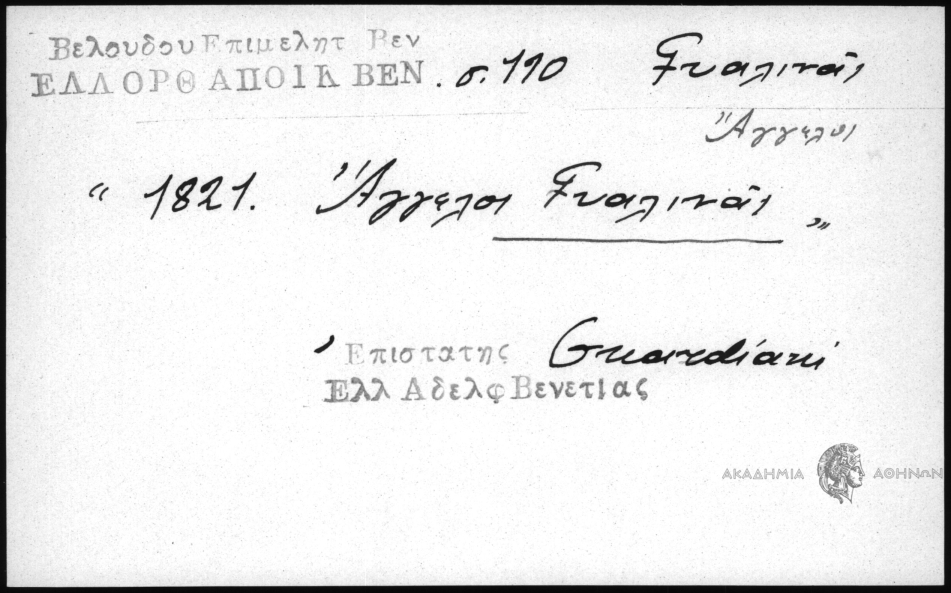 Βελουδου Επιμελητ Βεν
ΕΛΛ ΟΡΘ ΑΠΟΙΚ ΒΕΝ . σ. 190 Γυαλινᾶς
Ἄγγελος
“ 1821. Ἄγγελος Γυαλινᾶς „
Επιστατης Guardiani
Ελλ Αδελφ Βενετιας
ΑΚΑΔΗΜΙΑ ΑΘΗΝΩΝ